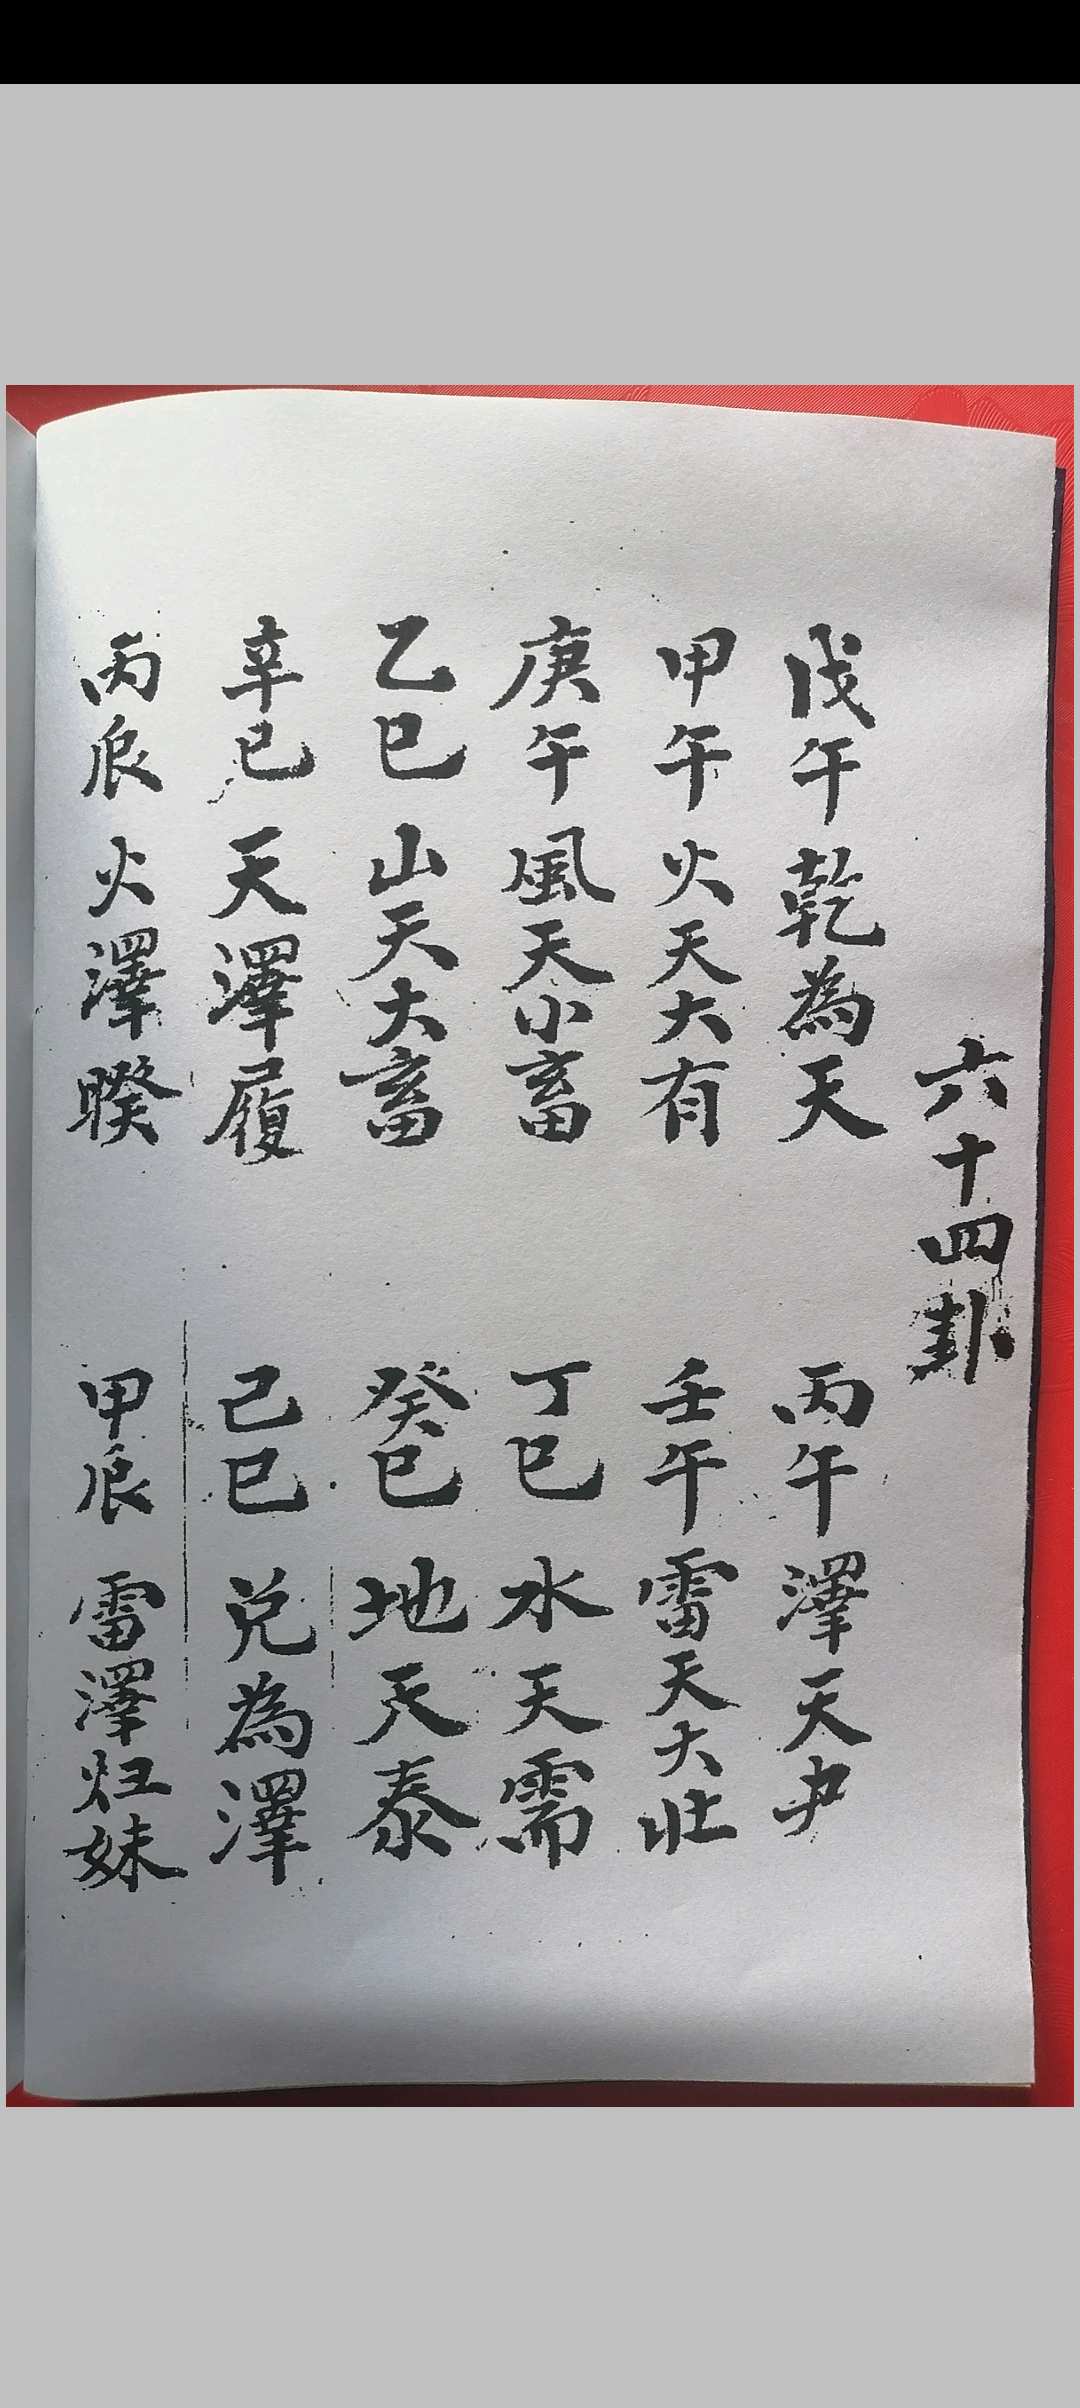 六十四卦
戊午 乾為天
丙午 澤天夬
甲午 火天大有
壬午 雷天大壯
庚午 風天小畜
丁巳 水天需
乙巳 山天大畜
癸巳 地天泰
辛巳 天澤履
己巳 兑為澤
丙辰 火澤睽
甲辰 雷澤归妹